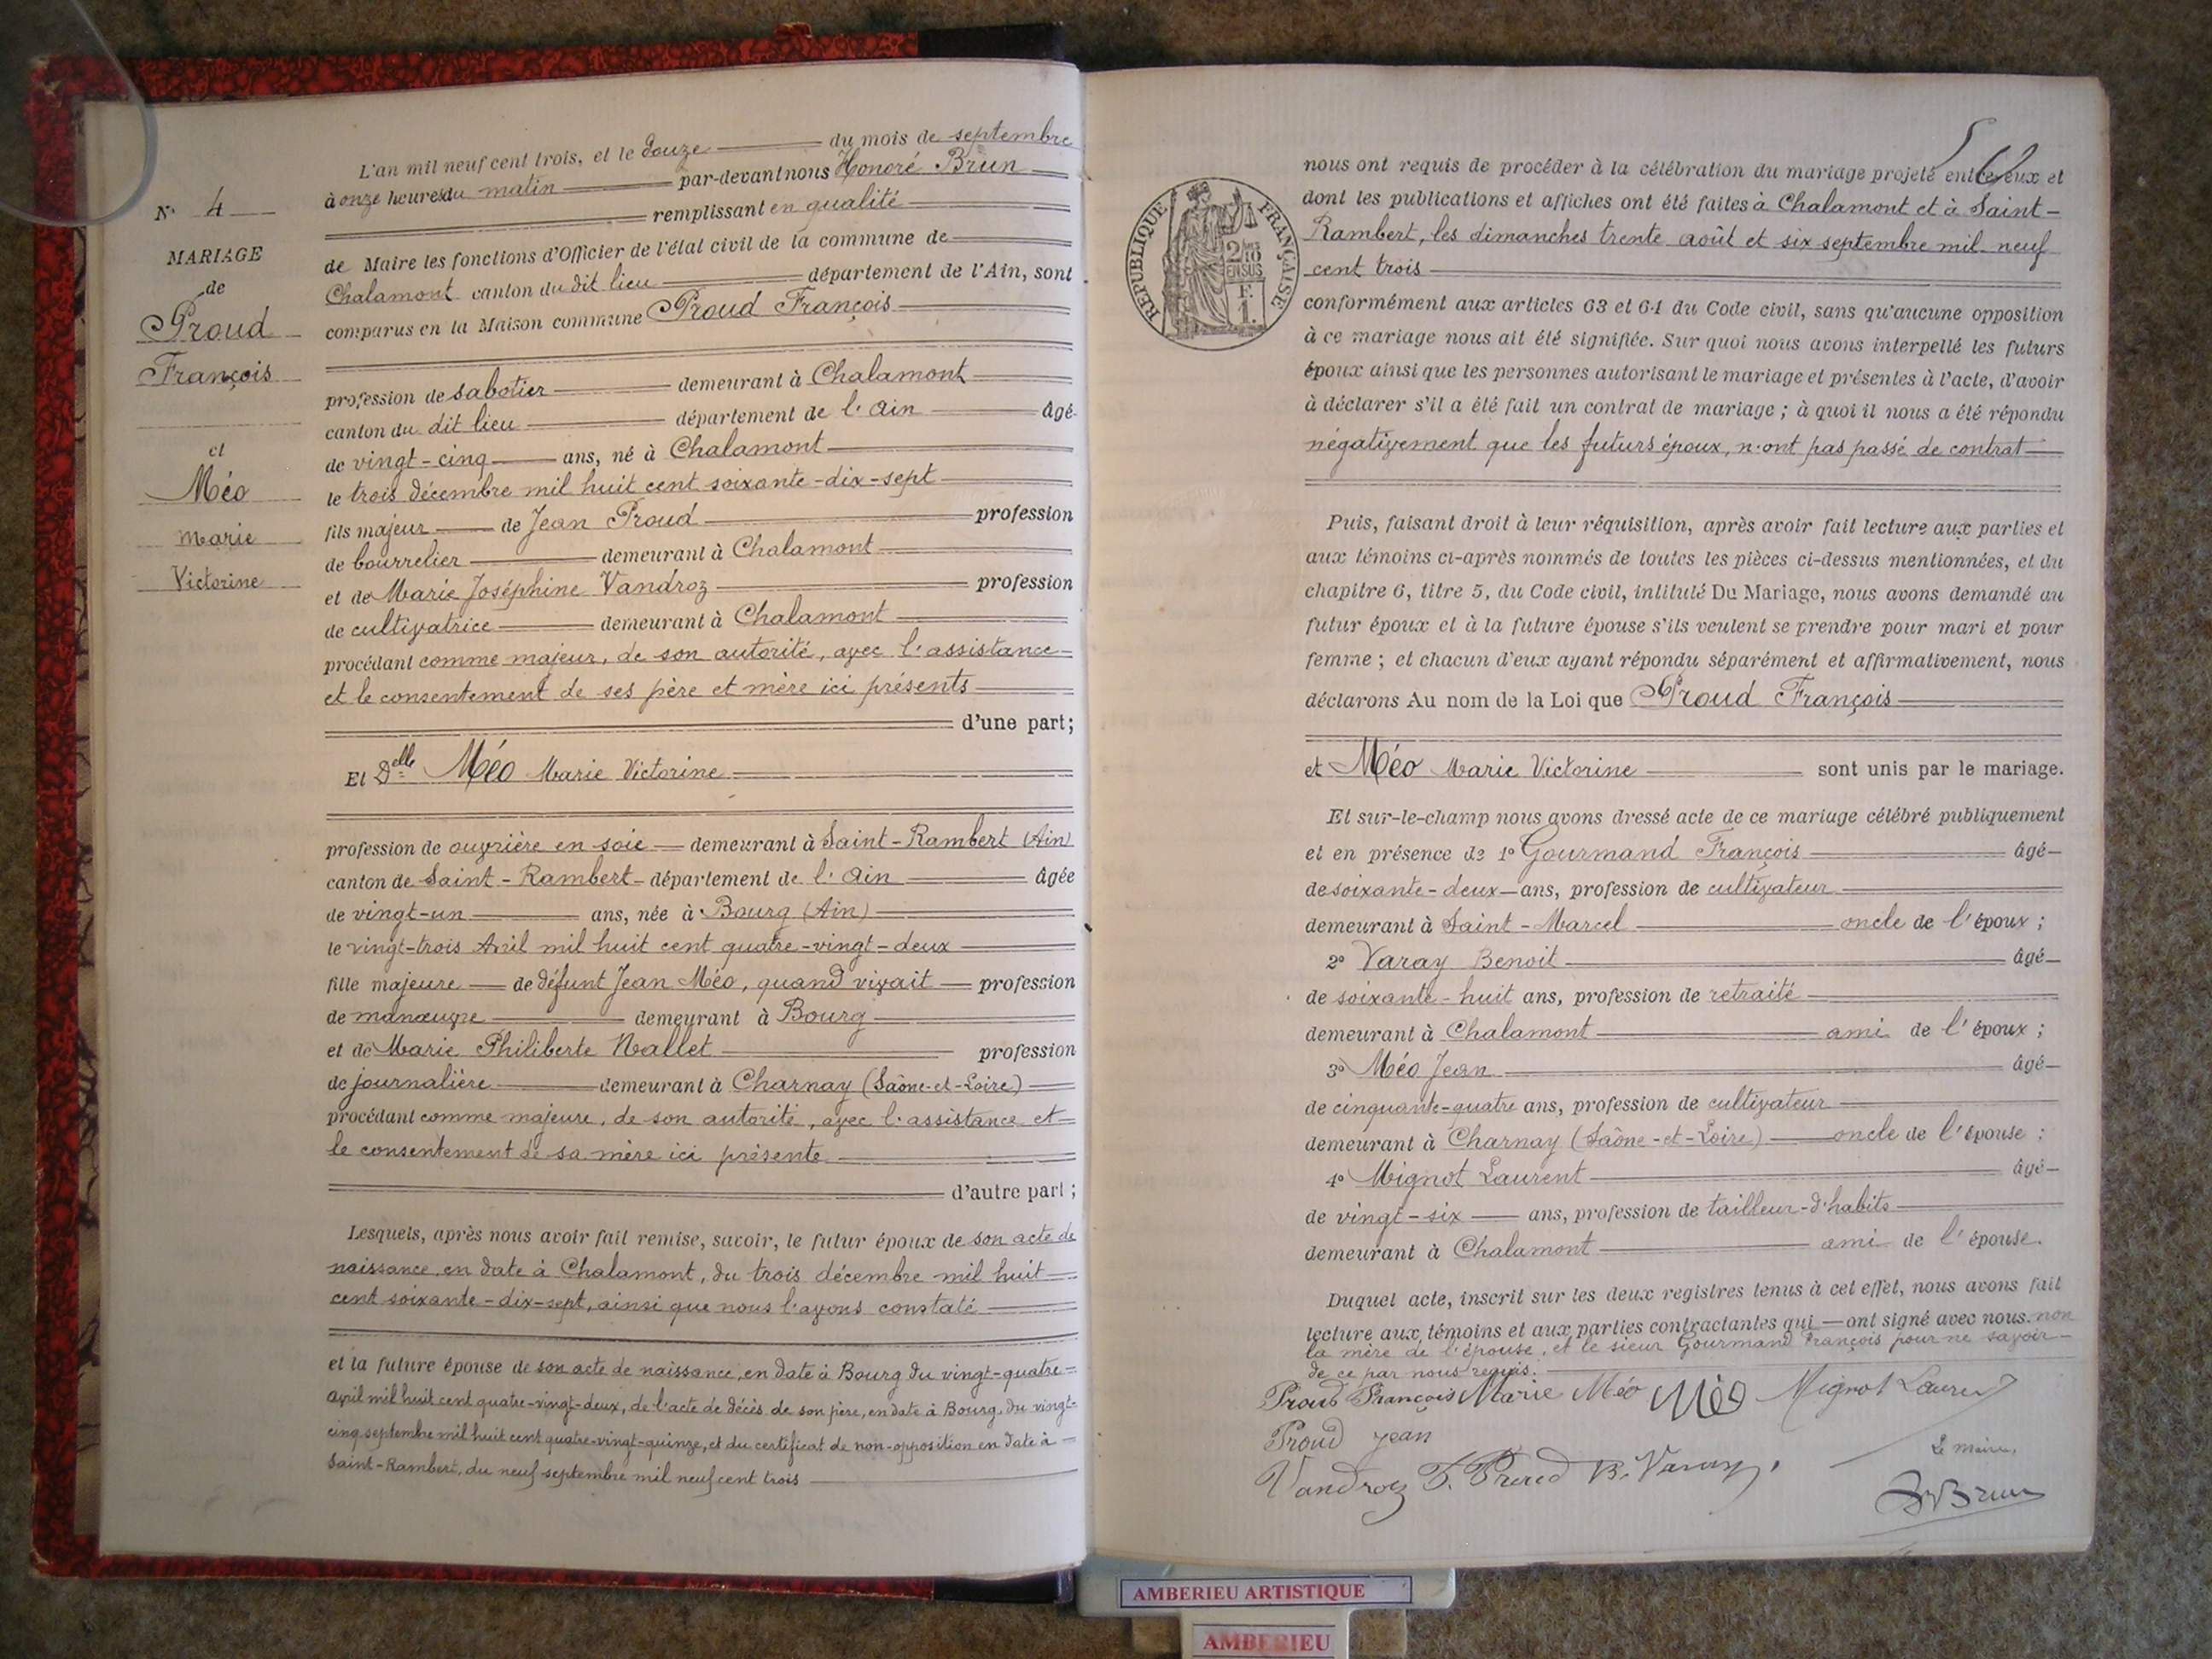 N° 4
MARIAGE
de
Proud
François
et
Méo
Marie
Victorine
L'an mil neuf cent trois, et le douze du mois de septembre
à onze heures du matin par-devant nous Honoré Brun
remplissant en qualité
de Maire les fonctions d'Officier de l'état civil de la commune de
Chalamont canton du dit lieu département de l'Ain, sont
comparus en la Maison commune Proud François
profession de sabotier demeurant à Chalamont
canton du dit lieu département de l'Ain âgé
de vingt-cinq ans, né à Chalamont
le trois décembre mil huit cent soixante-dix-sept
fils majeur de Jean Proud profession
de bourrelier demeurant à Chalamont
et de Marie Joséphine Vandroz profession
de cultivatrice demeurant à Chalamont
procédant comme majeur, de son autorité, avec l'assistance
et le consentement de ses père et mère ici présents
d'une part;
Et Delle Méo Marie Victorine
profession de ouvrière en soie demeurant à Saint-Rambert (Ain)
canton de Saint-Rambert département de l'Ain âgée
de vingt-un ans, née à Bourg (Ain)
le vingt-trois Avril mil huit cent quatre-vingt-deux
fille majeure de défunt Jean Méo, quand vivait profession
de manœuvre demeurant à Bourg
et de Marie Philiberte Nallet profession
de journalière demeurant à Charnay (Saône-et-Loire)
procédant comme majeure, de son autorité, avec l'assistance et
le consentement de sa mère ici présente
d'autre part;
Lesquels, après nous avoir fait remise, savoir, le futur époux de son acte de
naissance, en date à Chalamont, du trois décembre mil huit
cent soixante-dix-sept, ainsi que nous l'avons constaté
et la future épouse de son acte de naissance, en date à Bourg du vingt-quatre
avril mil huit cent quatre-vingt-deux, de l'acte de décès de son père, en date à Bourg, du vingt-
cinq septembre mil huit cent quatre-vingt-quinze, et du certificat de non-opposition en date à
Saint-Rambert, du neuf septembre mil neuf cent trois
RÉPUBLIQUE FRANÇAISE
2/10
EN SUS
F.
1.
nous ont requis de procéder à la célébration du mariage projeté entre eux et
dont les publications et affiches ont été faites à Chalamont et à Saint-
Rambert, les dimanches trente août et six septembre mil neuf
cent trois
conformément aux articles 63 et 64 du Code civil, sans qu'aucune opposition
à ce mariage nous ait été signifiée. Sur quoi nous avons interpellé les futurs
époux ainsi que les personnes autorisant le mariage et présentes à l'acte, d'avoir
à déclarer s'il a été fait un contrat de mariage; à quoi il nous a été répondu
négativement que les futurs époux, n'ont pas passé de contrat
Puis, faisant droit à leur réquisition, après avoir fait lecture aux parties et
aux témoins ci-après nommés de toutes les pièces ci-dessus mentionnées, et du
chapitre 6, titre 5, du Code civil, intitulé Du Mariage, nous avons demandé au
futur époux et à la future épouse s'ils veulent se prendre pour mari et pour
femme; et chacun d'eux ayant répondu séparément et affirmativement, nous
déclarons Au nom de la Loi que Proud François
et Méo Marie Victorine sont unis par le mariage.
Et sur-le-champ nous avons dressé acte de ce mariage célébré publiquement
et en présence de 1° Gourmand François âgé
de soixante-deux ans, profession de cultivateur
demeurant à Saint-Marcel oncle de l'époux;
2° Varay Benoit âgé
de soixante-huit ans, profession de retraité
demeurant à Chalamont ami de l'époux;
3° Méo Jean âgé
de cinquante-quatre ans, profession de cultivateur
demeurant à Charnay (Saône-et-Loire) oncle de l'épouse;
4° Mignot Laurent âgé
de vingt-six ans, profession de tailleur-d'habits
demeurant à Chalamont ami de l'épouse.
Duquel acte, inscrit sur les deux registres tenus à cet effet, nous avons fait
lecture aux témoins et aux parties contractantes qui ont signé avec nous. non
la mère de l'épouse, et le sieur Gourmand François pour ne savoir
de ce par nous requis.
Proud François Marie Méo Méo Mignot Laurent
Proud Jean
Le maire,
Vandroz F. Proud B. Varay
H Brun
AMBERIEU ARTISTIQUE
AMBERIEU